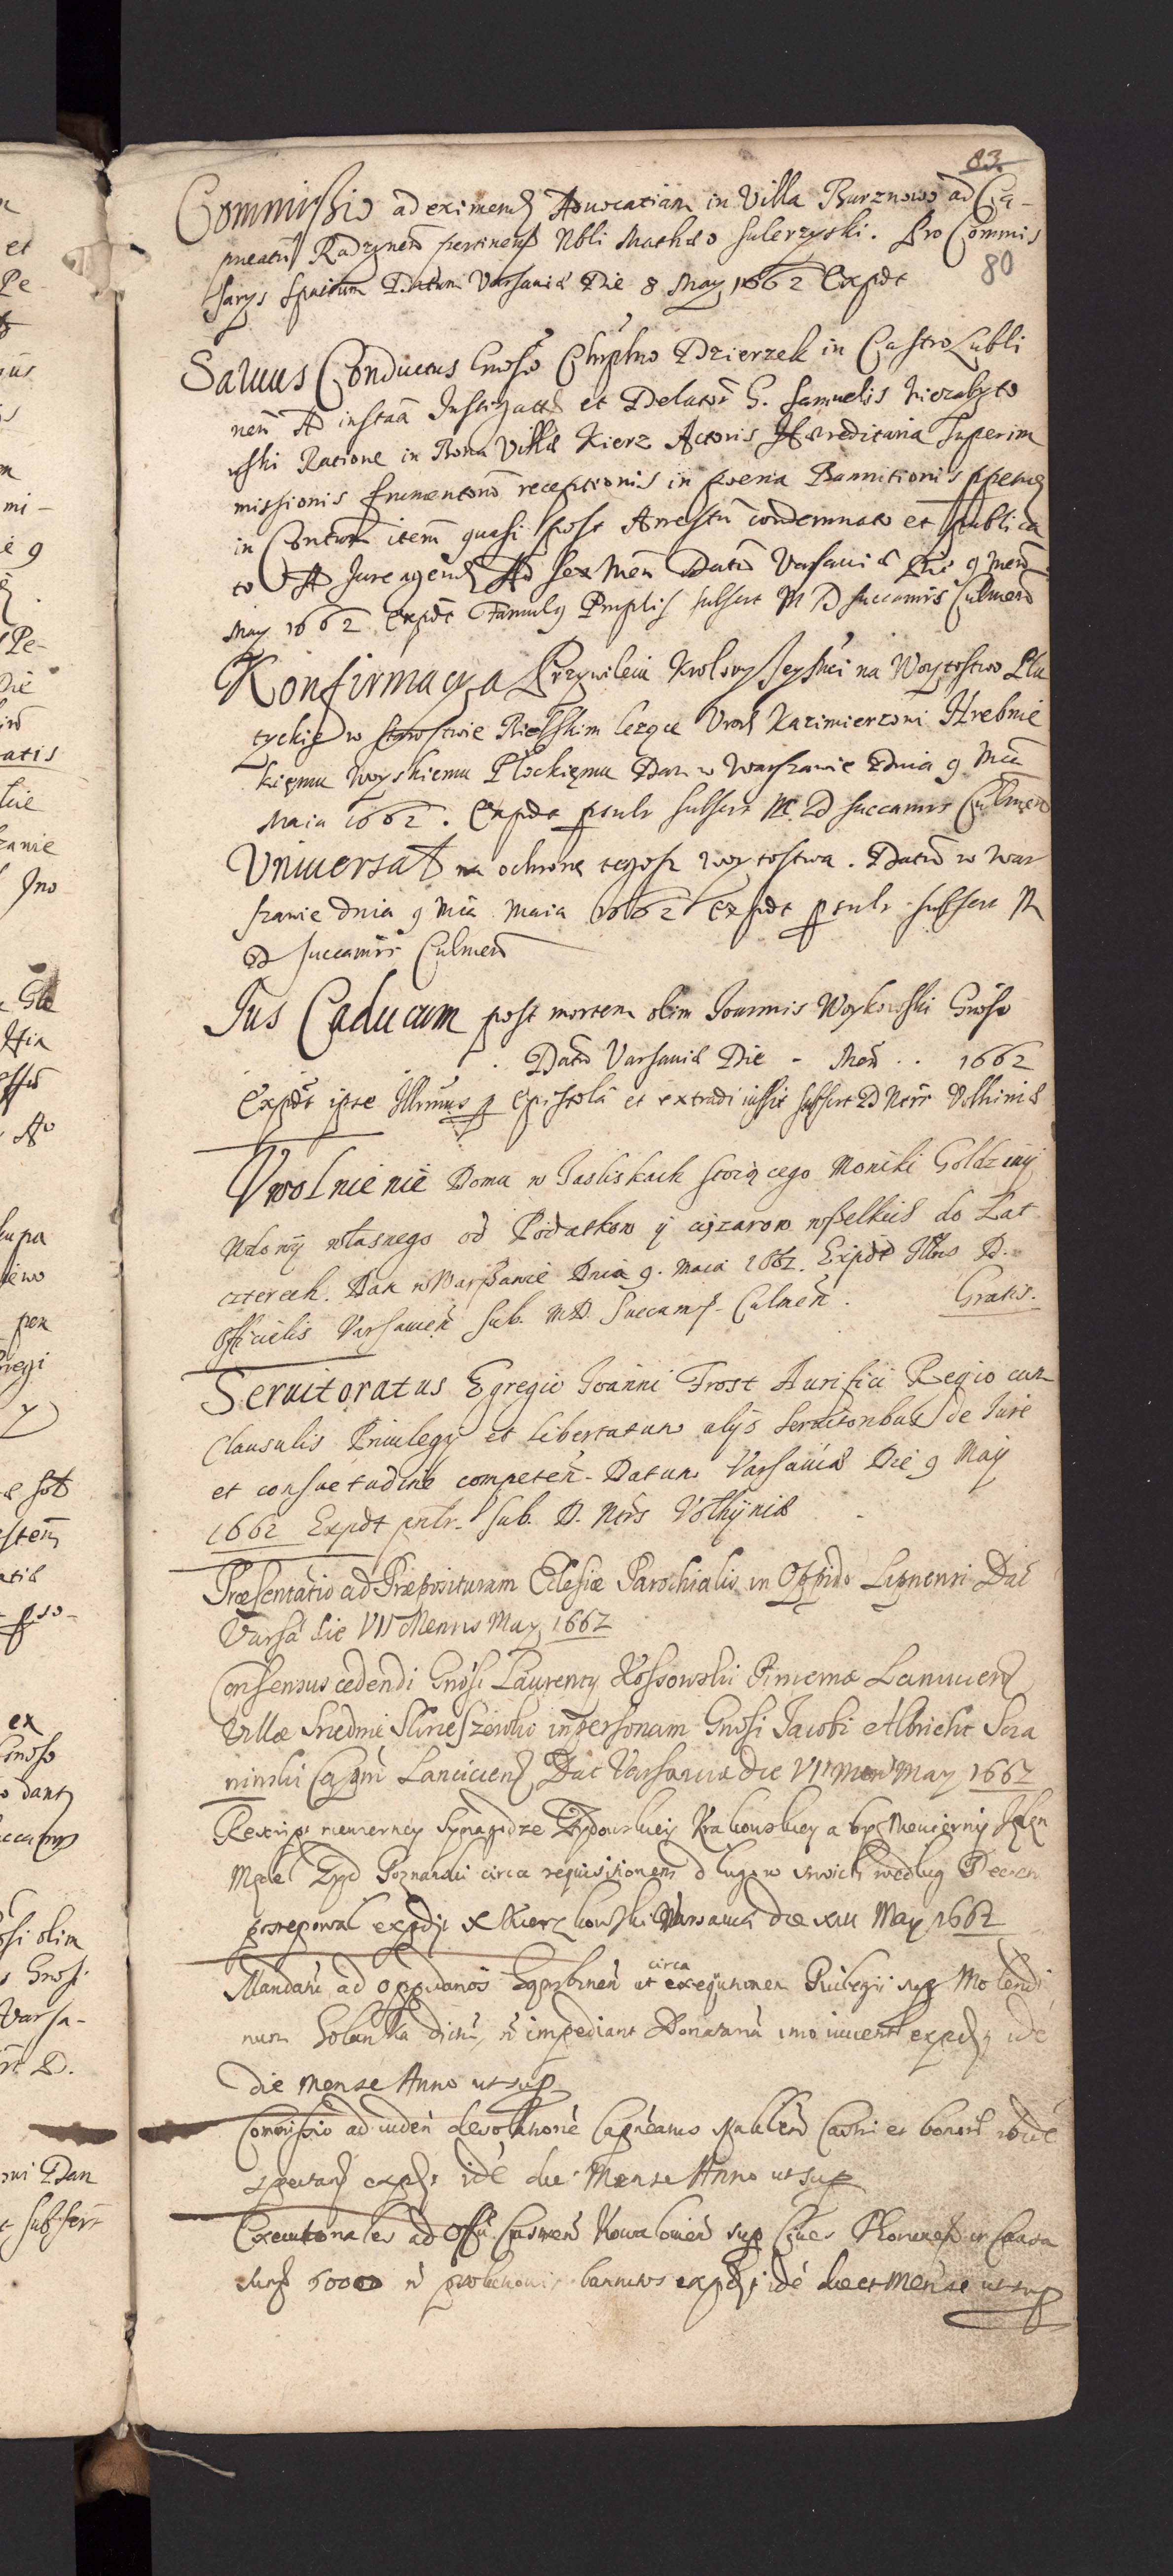 83
Commissio ad eximend Aduocatiam in Villa Burznowo ad Ca-
pneatū Radzynen pertinens Nbli Mathæo Sulerzyski. Pro Commis
80
sarys Spatium Datum Varsaviæ Die 8 May 1662 Expdt
Saluus Conductus Gnoso Chrphro Dzierzek in Castro Lubli
nen Ad instaā Instigatts et Delator G. Samuelis Niezabyto
wski Ratione in Bona Villæ Kierz Actoris Hæreditaria Superim
missionis frumentorū receptionis in poena Bannitionis ppetuę
in Contum item quasi post Arrestū condemnato et publica
to Ad Jure agend Ad sex Men Datū Varsaviæ Die 9 Men
May 1662 Expdt Famulq subscr M D Succamrs Culmen
Konfirmacya Przywileiu Krolowy Jeyṁci na Woytostwo Plu
tyckie w Starostwie Bielskim lezące Urod Kazimierzoni Hrebnic
kięmu Woyskiemu Plockięmu Dan w Warszawie Dnia 9 Mca
Maia 1662. Expdt psulr subscr M. D Succamrs Culmen
Uniuersał na ochronę tegosz Woytostwa. Datū w War
szawie dnia 9 Mca Maia 1662 Expdt psulr subscr M
D Succamrs Culmen
Jus Caducum post mortem olim Joannis Woykowski Gnoso
. Datū Varsaviæ Die - Men .. 1662
Expdt ipse Illrmus p Epistolā et extradi iussit subscr D Ntrs Volhiniæ
Vwolnienie Domu w Jasliskach stoiącego Moniki Goldziny
Wdowy własnego od Podatkow y cięzarow wszelkich do Lat
czterech. Dan w Warszawie Dnia 9. Maia 1662. Expdt Illris D.
Officialis Varsauien Sub. MD. Succams. Culmen. Gratis.
Seruitoratus Egregio Joanni Frost Aurifici Regio cum
Clausulis Priuilegy et Libertatum alijs Seruitoribus de Jure
et consuetudine competen. Datum Varsauiæ Die 9 Maij
1662 Expdt pntr. Sub. D. Ntrs Volhyniæ
Præsentatio ad Præposituram Eclesiæ Parochialis in Oppido Lipnensi Dat
Varsa die VII Mensis May 1662
Consensus cedendi Gnosi Laurenty Kossowski Pincernæ
Villæ Srednie in personam Gnosi Jacobi Albricht
Lanciciens Dat Varsauiæ die VII Mens May 1662
niewierney Synagodze Zydowskiey Krakowskiey a niewierny
Zyd Poznanski circa requisitionem dlugow swoich według
postepował expdt X Varsauiæ die XIII May 1662
Mandatū ad oppidanos ut circa exequtionem Priuilegii sup Molendi
num dictū, ne impediant Donatariū imo iuuent expdt idē
die Mense Anno ut sup
Commissio ad deuolutionē Capneatus Castri et bonorū ibidē
spectan expdt idē die Mense Anno ut sup
Executoriales ad Offū sup Ciues in Causa
60000 bannitos expdt idē die et Mense ut sup